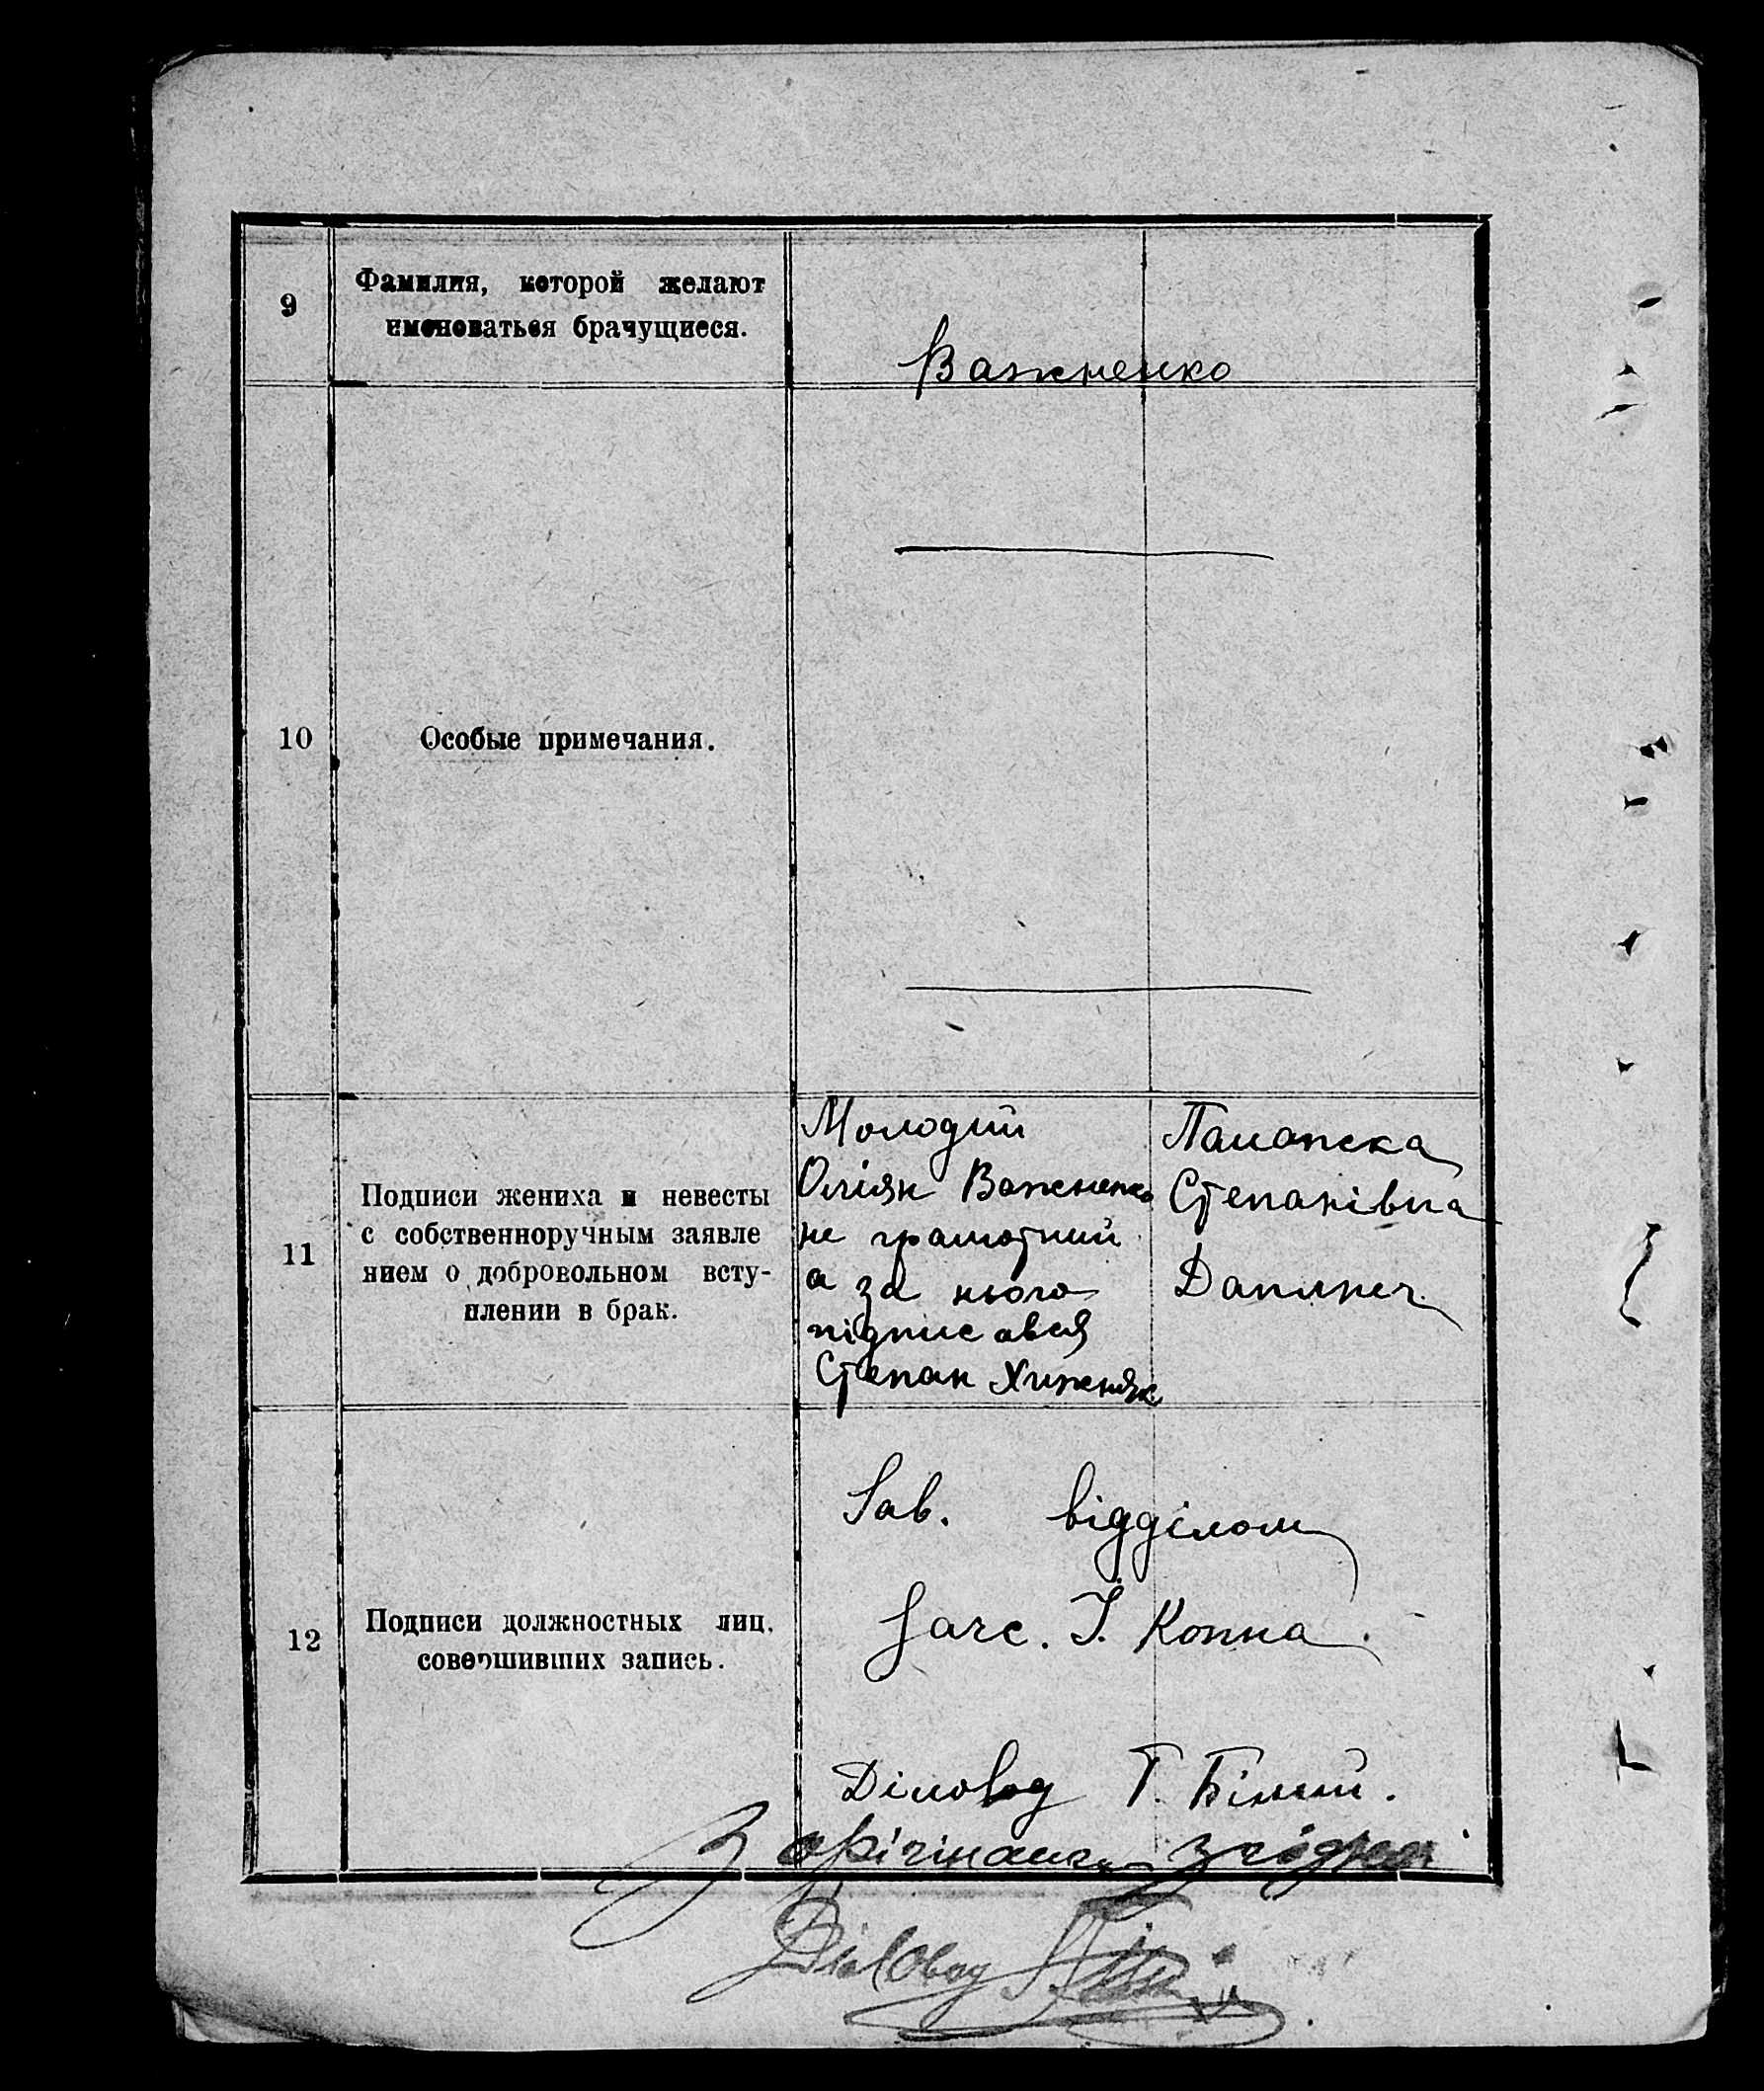 9
Фамилия, которой желают
именоваться брачущиеся.
Важненко
10
Особые примечания.
11
Подписи жениха и невесты
с собственноручным заявле
нием о добровольном всту-
плении в брак.
Молодий
Оліян Важненко
не грамотний
а за нього
підписався
Степан Хижняк
Палажка
Степанівна
12
Подписи должностных лиц,
совершивших запись.
Зав. відділом
І. Копна
Діловод Т. Білий.
З орігіналом згідно
Діловод